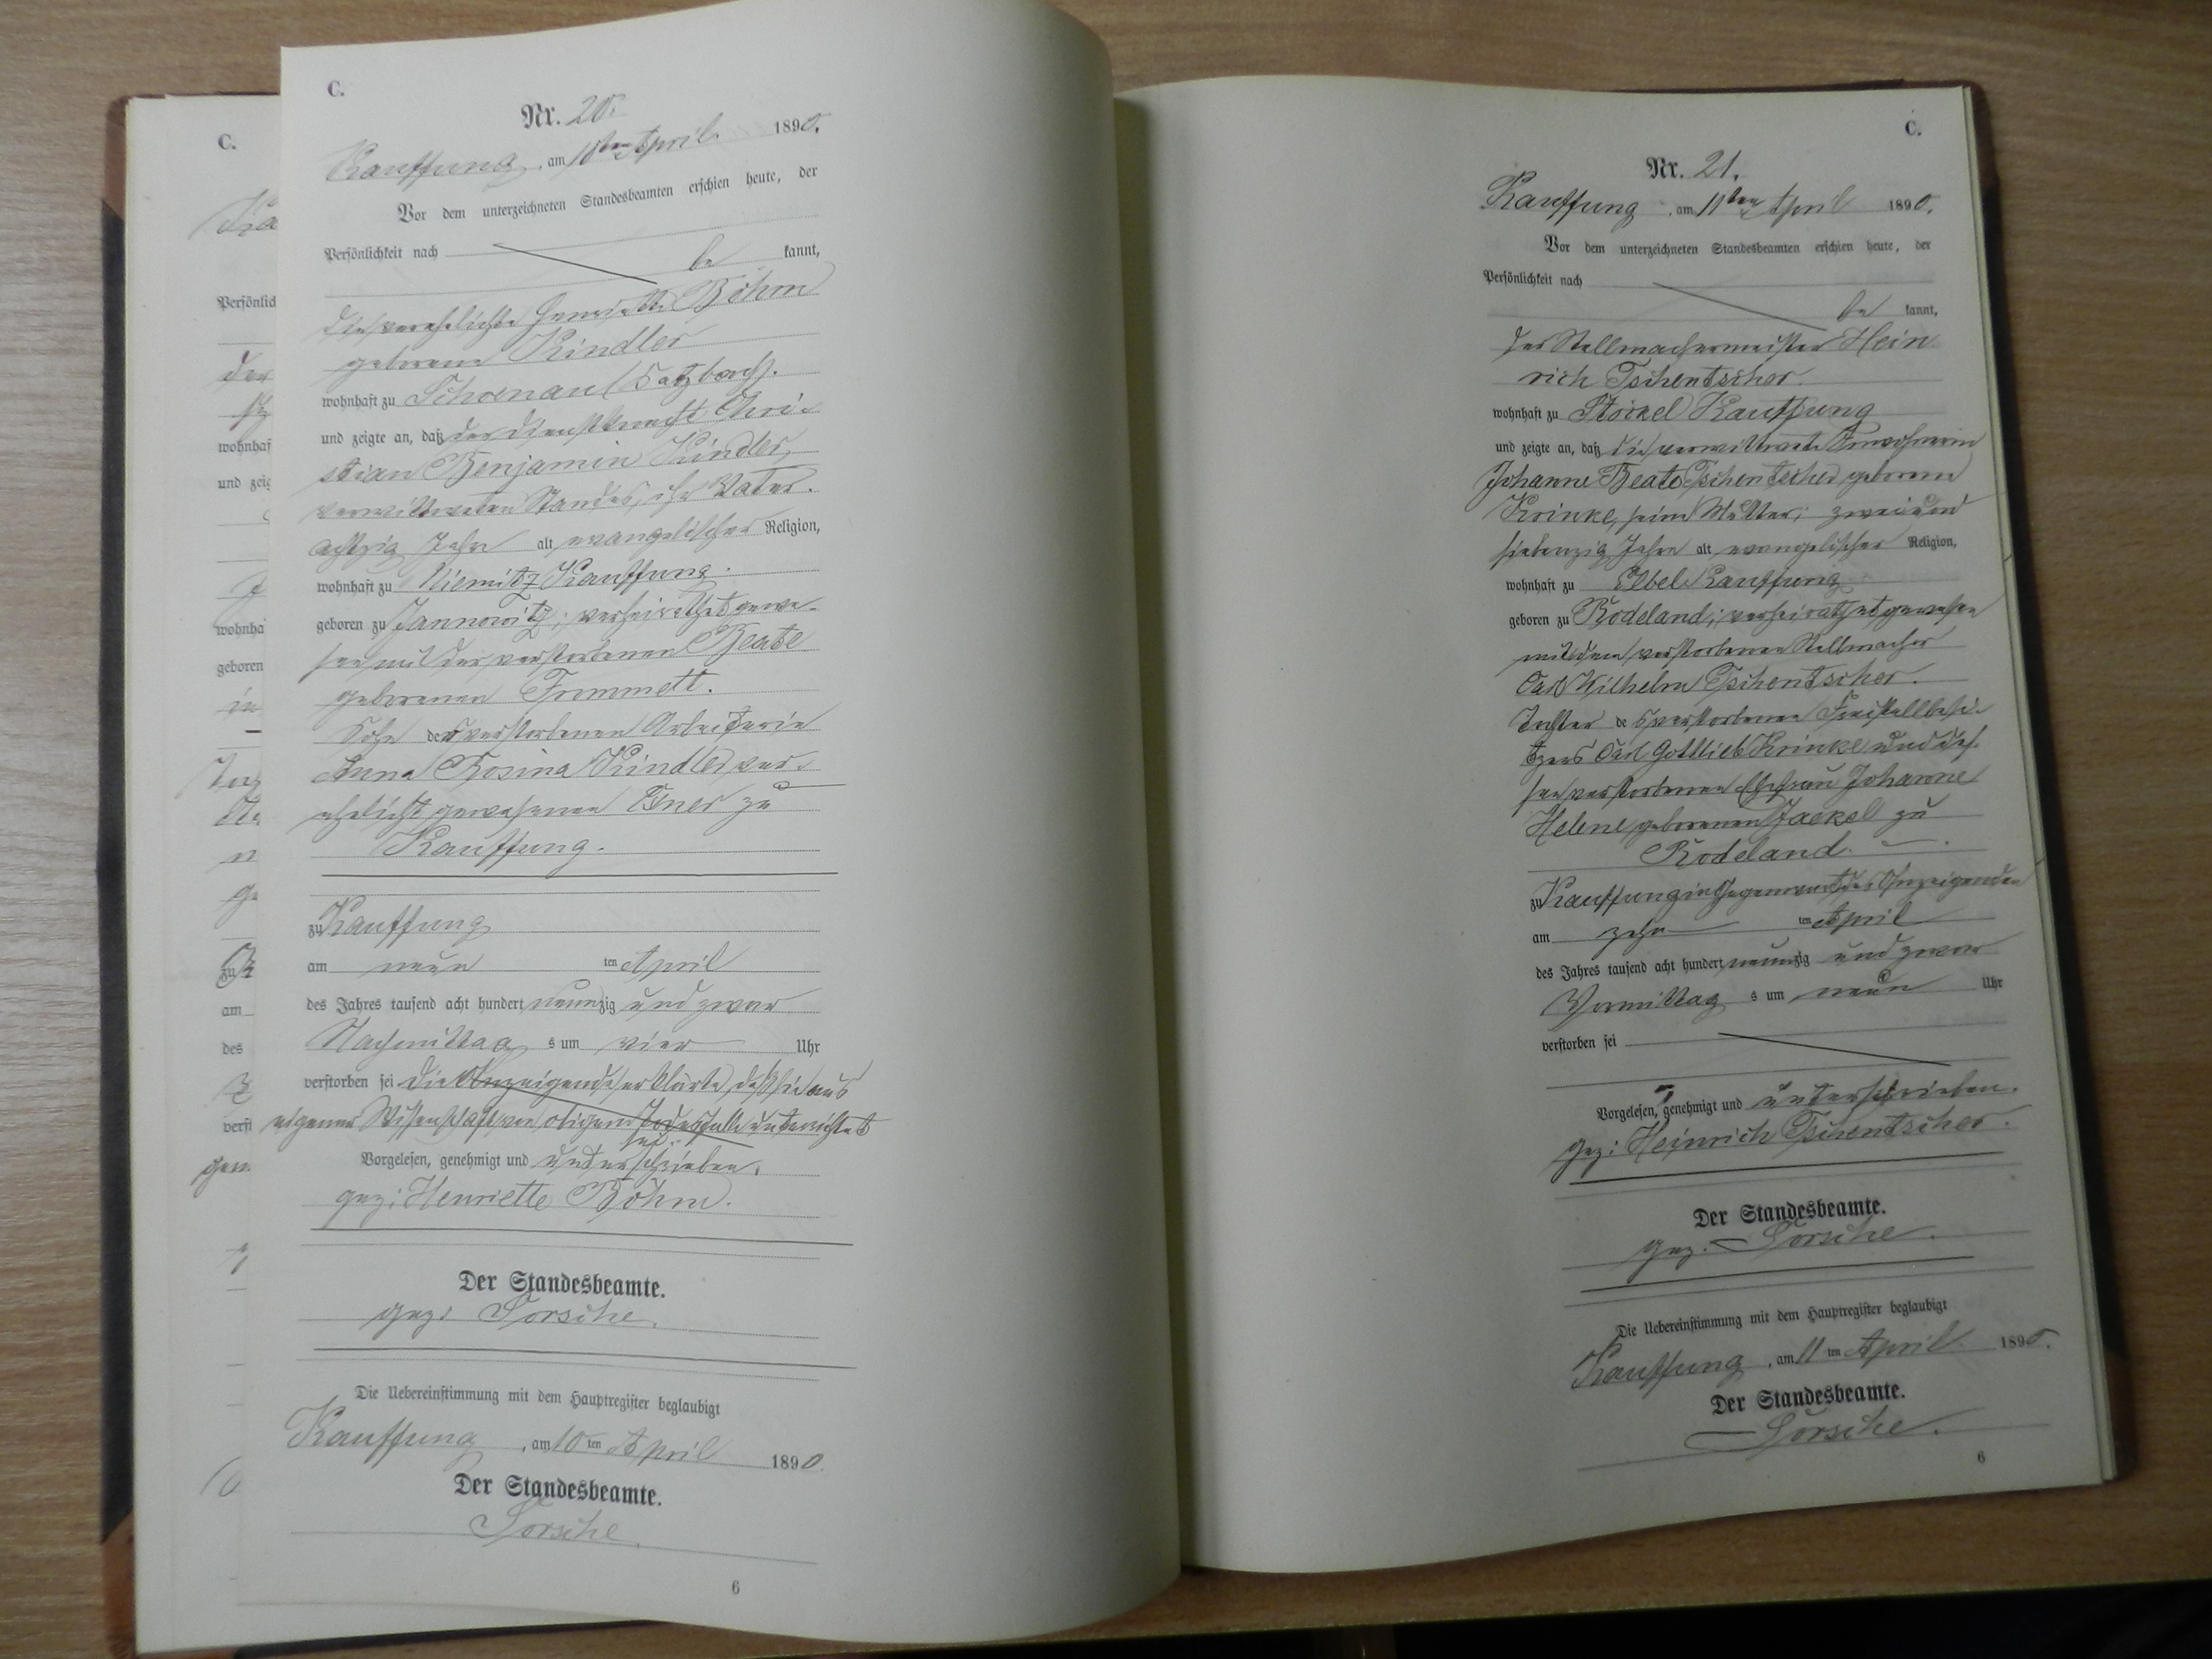 C.
Nr. 20.
Kauffung, am 10ten April 1890.
Vor dem unterzeichneten Standesbeamten erschien heute, der
Persönlichkeit nach
be kannt,
die verehelichte Henriette Böhm
geborene Kindler
wohnhaft zu Schoenau (Katzbach).
und zeigte an, daß der Dienstknecht Chri-
stian Benjamin Kindler,
verwittweten Standes, ihr Vater.
achtzig Jahre alt, evangelischer Religion,
wohnhaft zu Niemitz Kauffung.
geboren zu Jannowitz; verheirathet gewe-
sen mit der verstorbenen Beate
geborenen Frommelt.
Sohn der verstorbenen Arbeiterin
Anna Rosina Kindler, ver-
ehelicht gewesenen zu
Kauffung.
zu Kauffung
am neun ten April
des Jahres tausend acht hundert neunzig und zwar
Nachmittag s um vier Uhr
verstorben sei die Anzeigende erklärte, daß sie aus
eigener Wissenschaft von obigem Todesfalle unterrichtet
sei.
Vorgelesen, genehmigt und unterschrieben.
gez: Henriette Böhm.
Der Standesbeamte.
gez: Sorsche.
Die Uebereinstimmung mit dem Hauptregister beglaubigt
Kauffung, am 10ten April 1890.
Der Standesbeamte.
Sorsche.
6
C.
Persönlich
der
wohnhaf
und zeig
wohnha
geboren
in
zu
am
des
verst
C.
Nr. 21.
Kauffung, am 11ten April 1890.
Vor dem unterzeichneten Standesbeamten erschien heute, der
Persönlichkeit nach
be kannt,
der Stellmachermeister Hein
rich Tschentscher.
wohnhaft zu Stöckel Kauffung
und zeigte an, daß die verwittwete Inwohnerin
Johanne Beate Tschentscher geborene
Krinke, seine Mutter; zweiund
siebenzig Jahre alt, evangelischer Religion,
wohnhaft zu Elbel Kauffung
geboren zu Rodeland; verheirathet gewesen
mit dem verstorbenen Stellmacher
Carl Wilhelm Tschentscher.
Tochter des verstorbenen Freistellbesi-
tzers Carl Gottlieb Krinke und des-
sen verstorbenen Ehefrau Johanne
Helene geborenen Jaekel zu
Rodeland.
zu Kauffung in Gegenwart des Anzeigenden
am zehn ten April
des Jahres tausend acht hundert neunzig und zwar
Vormittag s um neun Uhr
verstorben sei
Vorgelesen, genehmigt und unterschrieben.
gez: Heinrich Tschentscher.
Der Standesbeamte.
gez. Sorsche.
Die Uebereinstimmung mit dem Hauptregister beglaubigt
Kauffung, am 11ten April 1890.
Der Standesbeamte.
Sorsche.
6